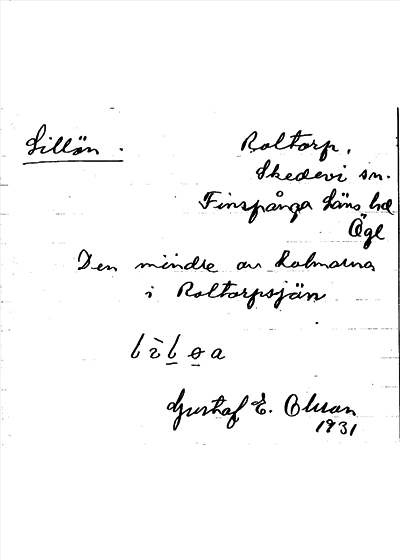 Lillön.
Roltorp,
Skedevi sn.
Finspånga läns hd
Ögl
Den mindre av holmarna
i Roltorpsjön
Gustaf E. Olsson
1931